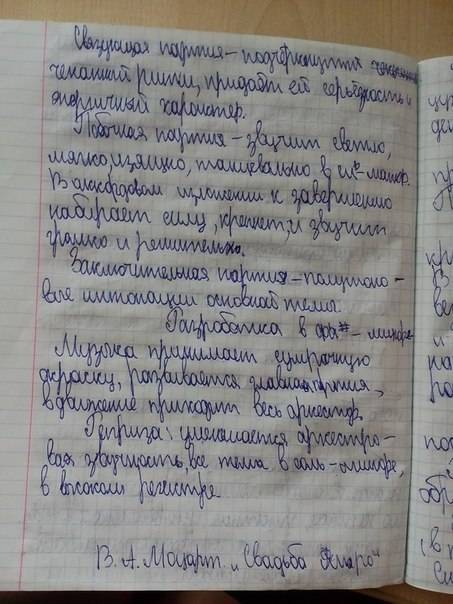 Связующая партия – подчёркнутый
чеканный ритм, придаёт ей серьёзность и
энергичный характер.
Побочная партия – звучит светло,
мягко, изящно, танцевально в си♭-мажор.
В аккордовом изложении к завершению
набирает силу, крепнет, и звучит
громко и решительно.
Заключительная партия – полутоно-
вые интонации основной темы.
Разработка в фа#-миноре
Музыка принимает сумрачную
окраску, развивается главная партия,
в движение приходит весь оркестр.
Реприза: уменьшается оркестро-
вая звучность, все темы в соль-миноре,
в высоком регистре
В. А. Моцарт „Свадьба Фигаро"
цу
де
пр
П
кр
В
ве
и
на
ро
по
обр
(в
Си